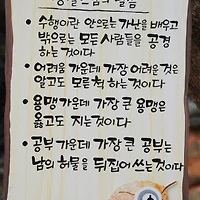 • 수행이란 안으로는 가난을 배우고
밖으로는 모든 사람들을 공경
하는 것이다
• 어려움 가운데 가장 어려운 것은
알고도 모른척 하는 것이다
• 용맹 가운데 가장 큰 용맹은
옳고도 지는것이다
• 공부 가운데 가장 큰 공부는
남의 허물을 뒤집어쓰는것이다